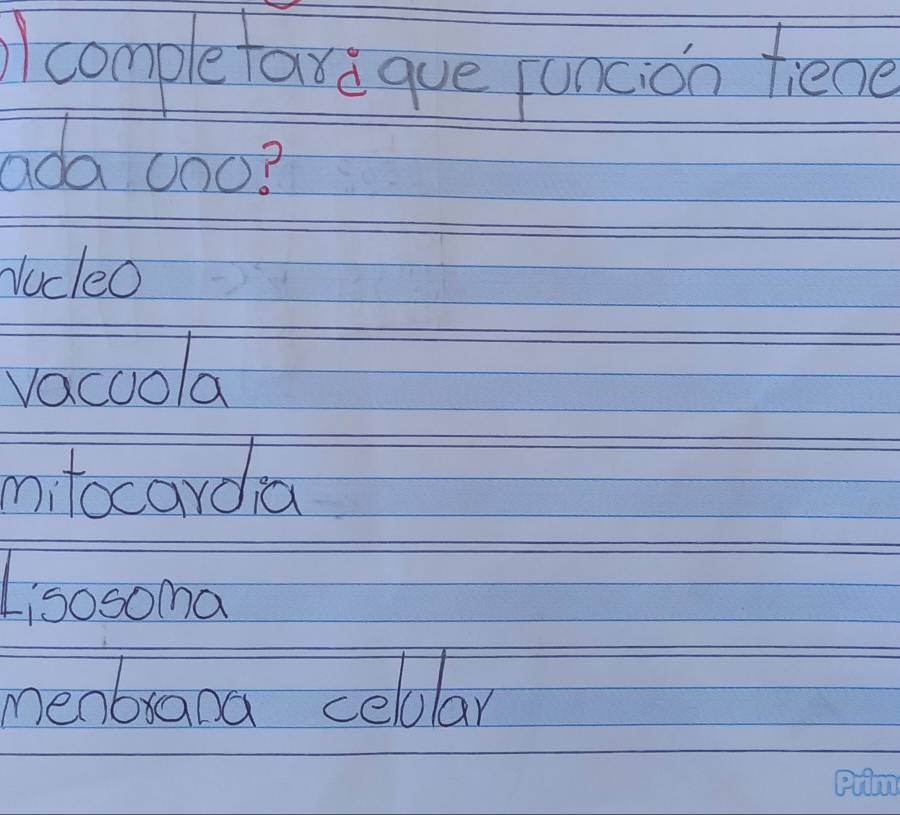 ) completar ¿que función tiene
ada uno?
Nucleo
vacuola
mitocardia
Lisosoma
menbrana celular
Prim